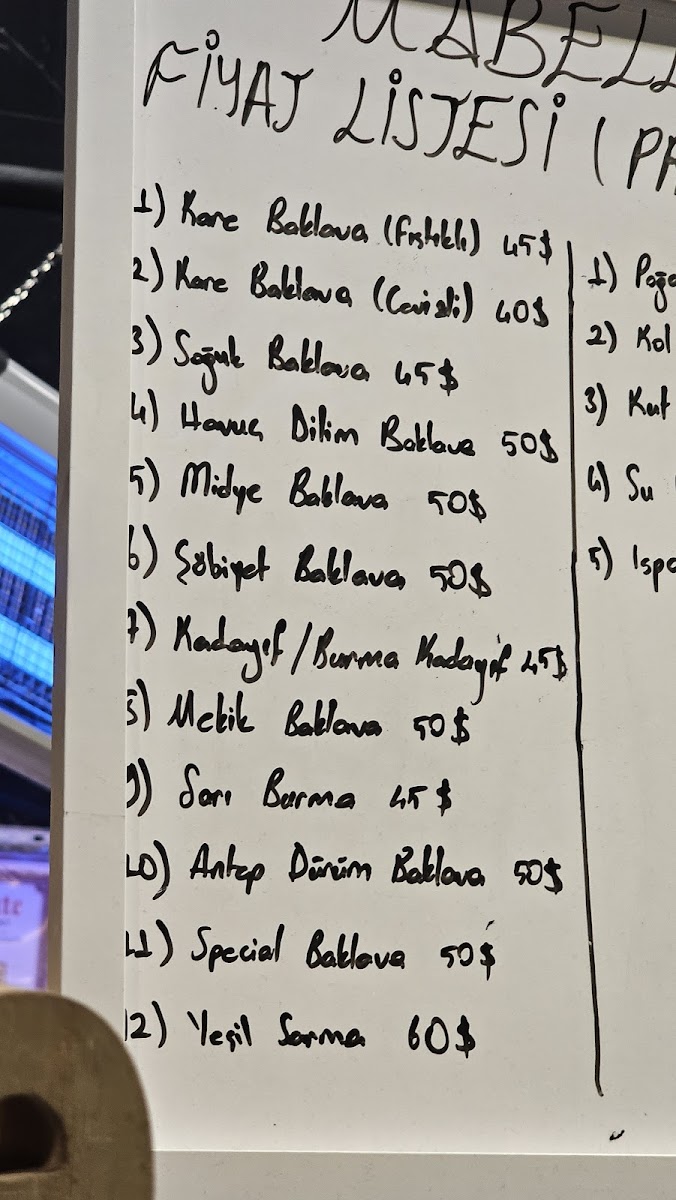 MABELL
FİYAT LİSTESİ (PA
1) Kare Baklava (fıstıklı) 45$
2) Kare Baklava (Cevizli) 40$
3) Soğuk Baklava 45$
4) Havuç Dilim Baklava 50$
5) Midye Baklava 50$
6) Şöbiyet Baklava 50$
7) Kadayıf / Burma Kadayıf 45$
8) Mekik Baklava 50$
9) Sarı Burma 45$
10) Antep Dürüm Baklava 50$
11) Special Baklava 50$
12) Yeşil Sarma 60$
1) Poğa
2) Kol
3) Kut
4) Su
5) Ispa